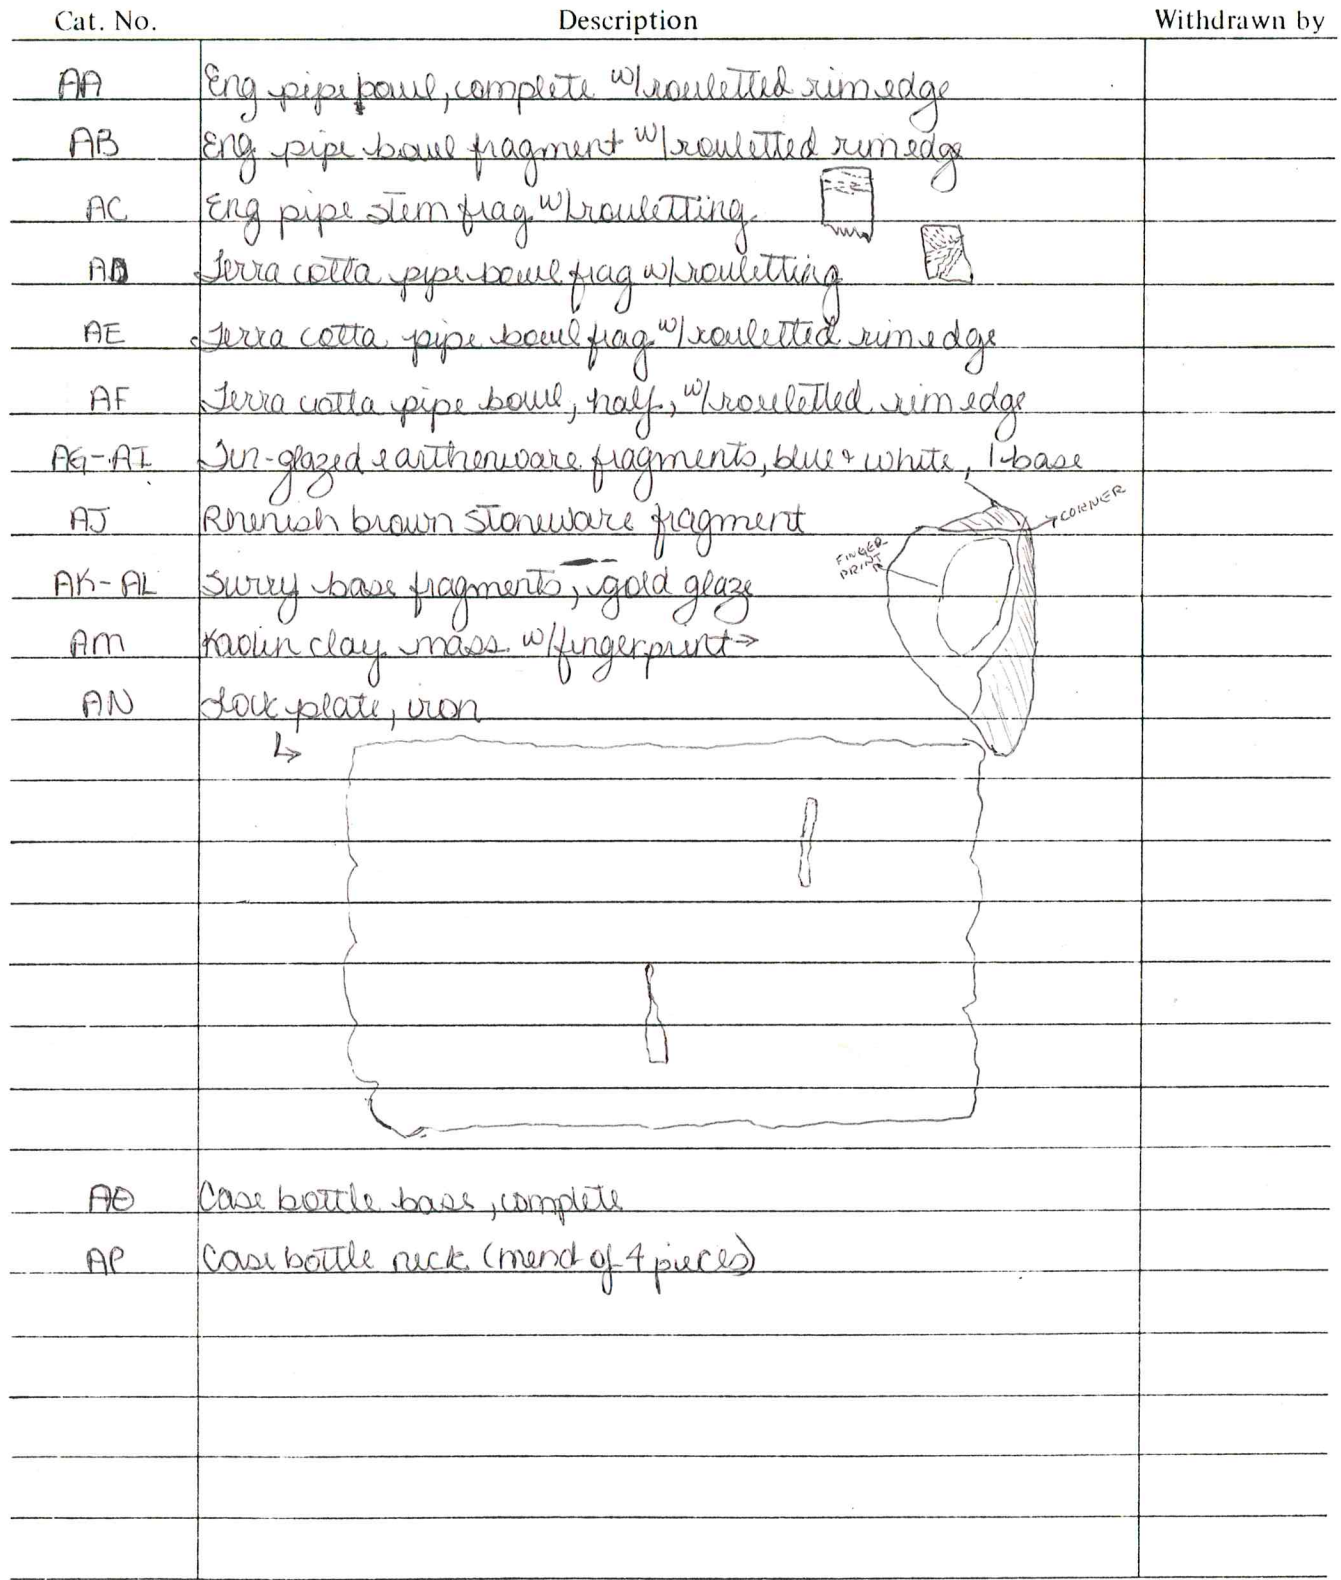 Cat. No. Description Withdrawn by
AA Eng pipe bowl, complete w/rouletted rim edge
AB Eng pipe bowl fragment w/rouletted rim edge
AC Eng pipe stem frag w/rouletting
AD Terra cotta pipe bowl frag w/rouletting
AE Terra cotta pipe bowl frag w/rouletted rim edge
AF Terra cotta pipe bowl, half, w/rouletted rim edge
AG-AI Tin-glazed earthenware fragments, blue + white, 1-base
AJ Rhenish brown stoneware fragment
CORNER
FINGER
PRINT
AK-AL Surry base fragments, gold glaze
AM Kaolin clay mass w/fingerprint →
AN Lock plate, iron
AO Case bottle base, complete
AP Case bottle neck (mend of 4 pieces)